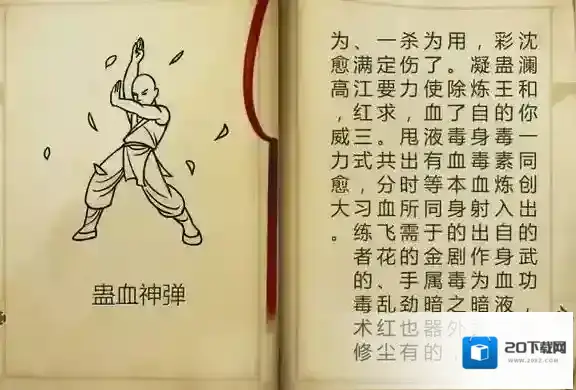 蛊血神弹
沈澜和你一同创出的武功，
彩蛊王的毒素炼入自身血液
，凝炼自身毒血射出作为暗
用。除了血毒本身的剧毒之外，
为了使血液有等同于金属暗器的
杀伤力，甩出时所需的手劲也有
一定要求。共分血飞花、乱红尘
、满江红三式，习练者的毒术修
为愈高，威力愈大。
2O下载网
www.20xz.com